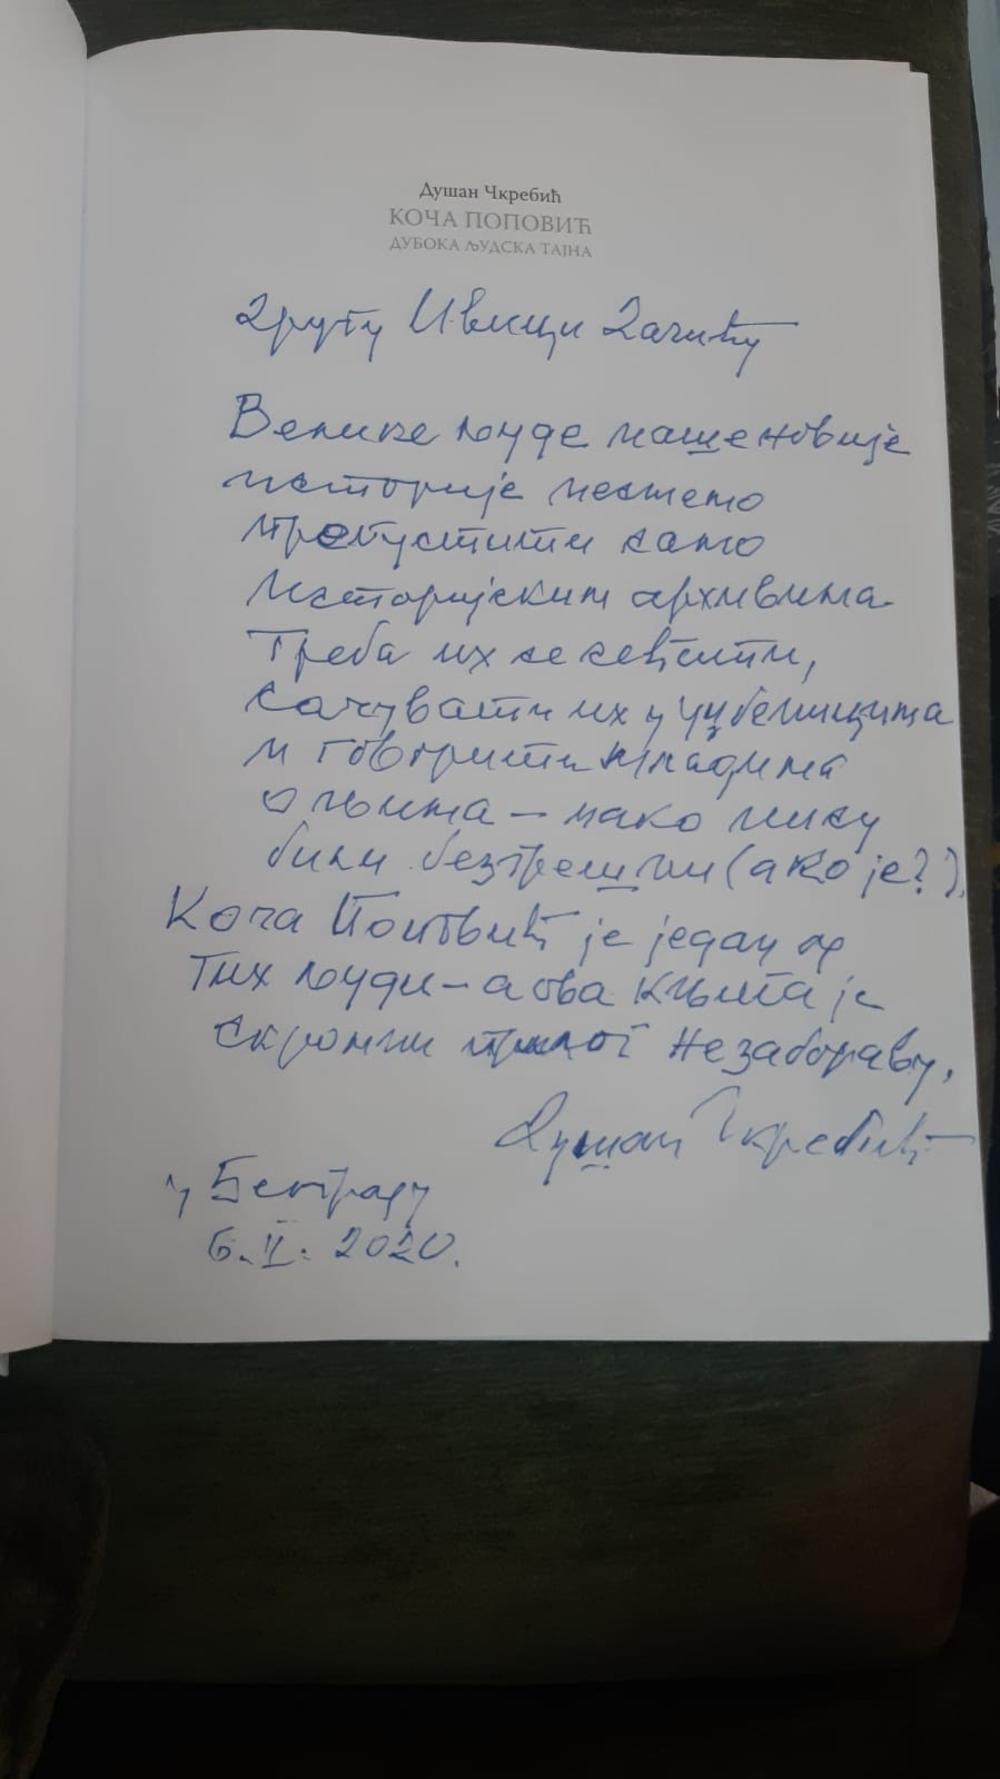 Душан Чкребић
КОЧА ПОПОВИЋ
ДУБОКА ЉУДСКА ТАЈНА
Другу Ивици
Велике људе наше новије
историје нећемо
препустити само
историјским архивима.
Треба их се сећати,
сачувати их у уџбеницима
и говорити младима
о њима – иако нису
били безгрешни (а ко је?).
Коча Поповић је један од
тих људи – а ова књига је
скромни прилог незабораву.
Душан Чкребић
у Београду
6. II. 2020.